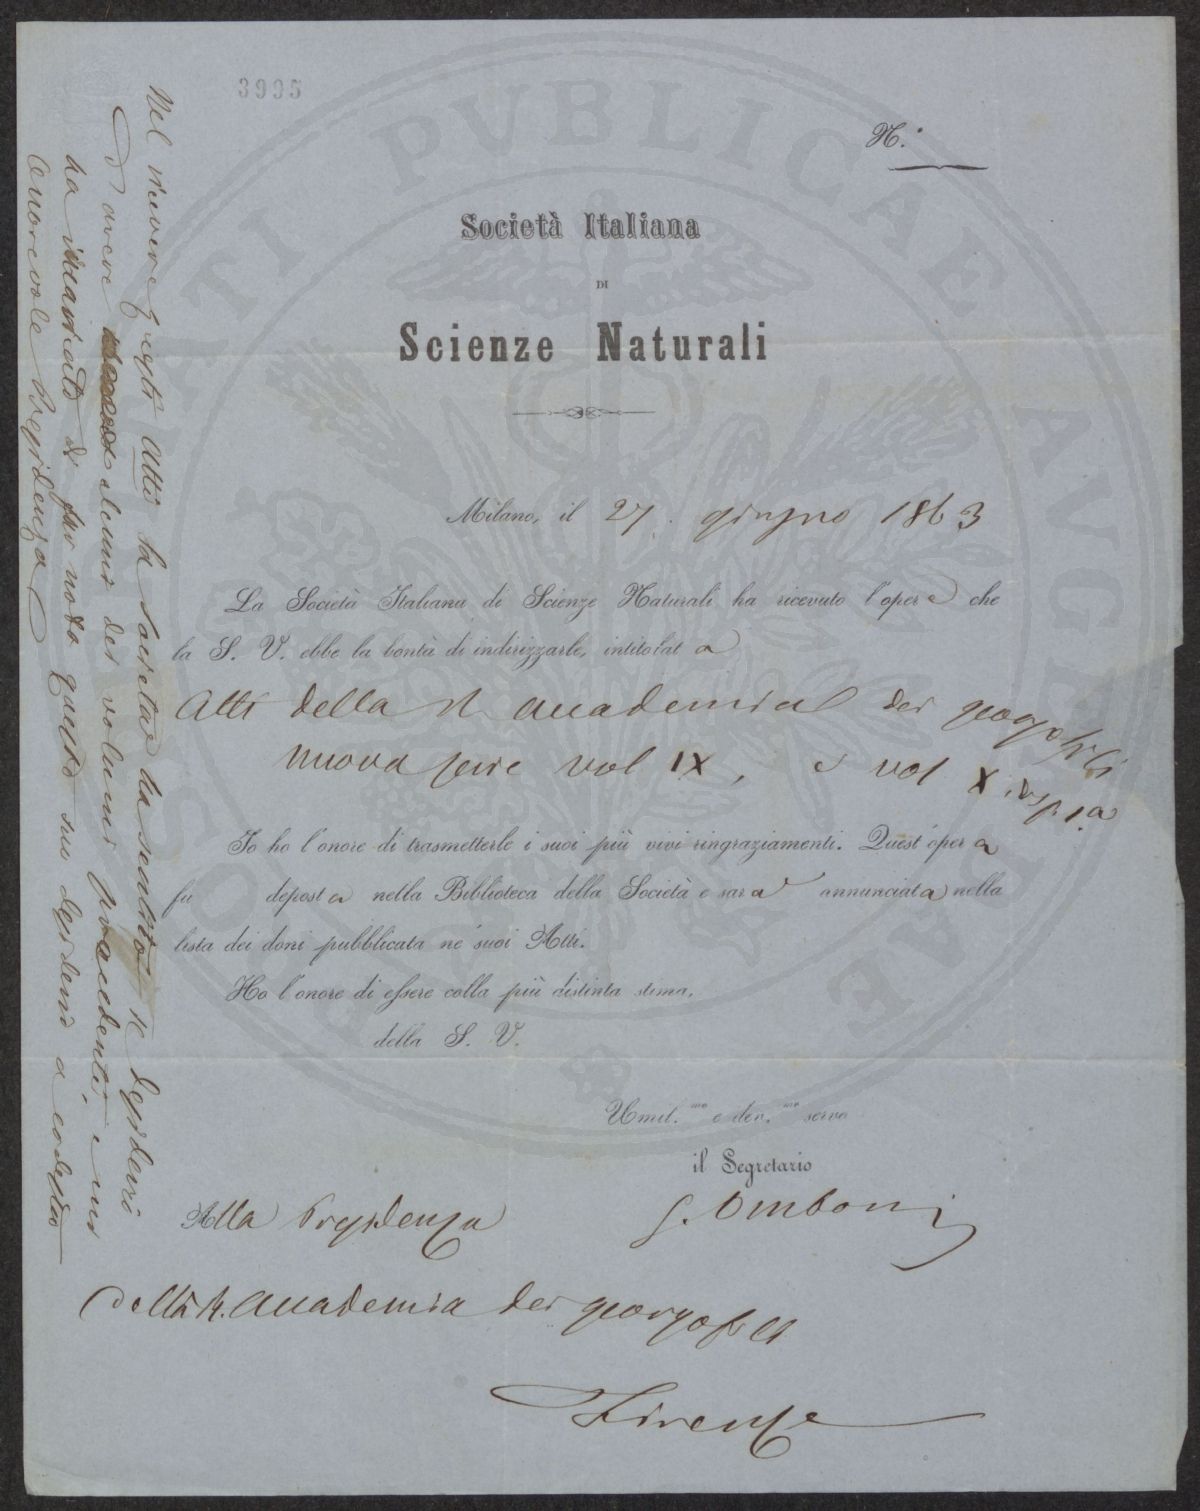 3995
N.°
Società Italiana
DI
Scienze Naturali
Milano, il 27 giugno 1863
La Società Italiana di Scienze Naturali ha ricevuto l'opera che
la S. V. ebbe la bontà di indirizzarle, intitolata
Atti della R Accademia dei georgofili
nuova serie vol IX, e vol X, disp 1.a
Io ho l'onore di trasmetterle i suoi più vivi ringraziamenti. Quest'opera
fu deposta nella Biblioteca della Società e sarà annunciata nella
lista dei doni pubblicata ne' suoi Atti.
Ho l'onore di essere colla più distinta stima,
della S. V.
Umil.mo e dev.mo servo
il Segretario
G. Omboni
Alla Presidenza
della R. Accademia dei georgofili
Firenze
Nel ricevere questi Atti la Società ha sentito il desiderio
di avere alcuni dei volumi precedenti, e mi
ha incaricato di far noto questo suo desiderio a codesta
onorevole Presidenza
POSTERITATI PVBLICAE AVGENDAE